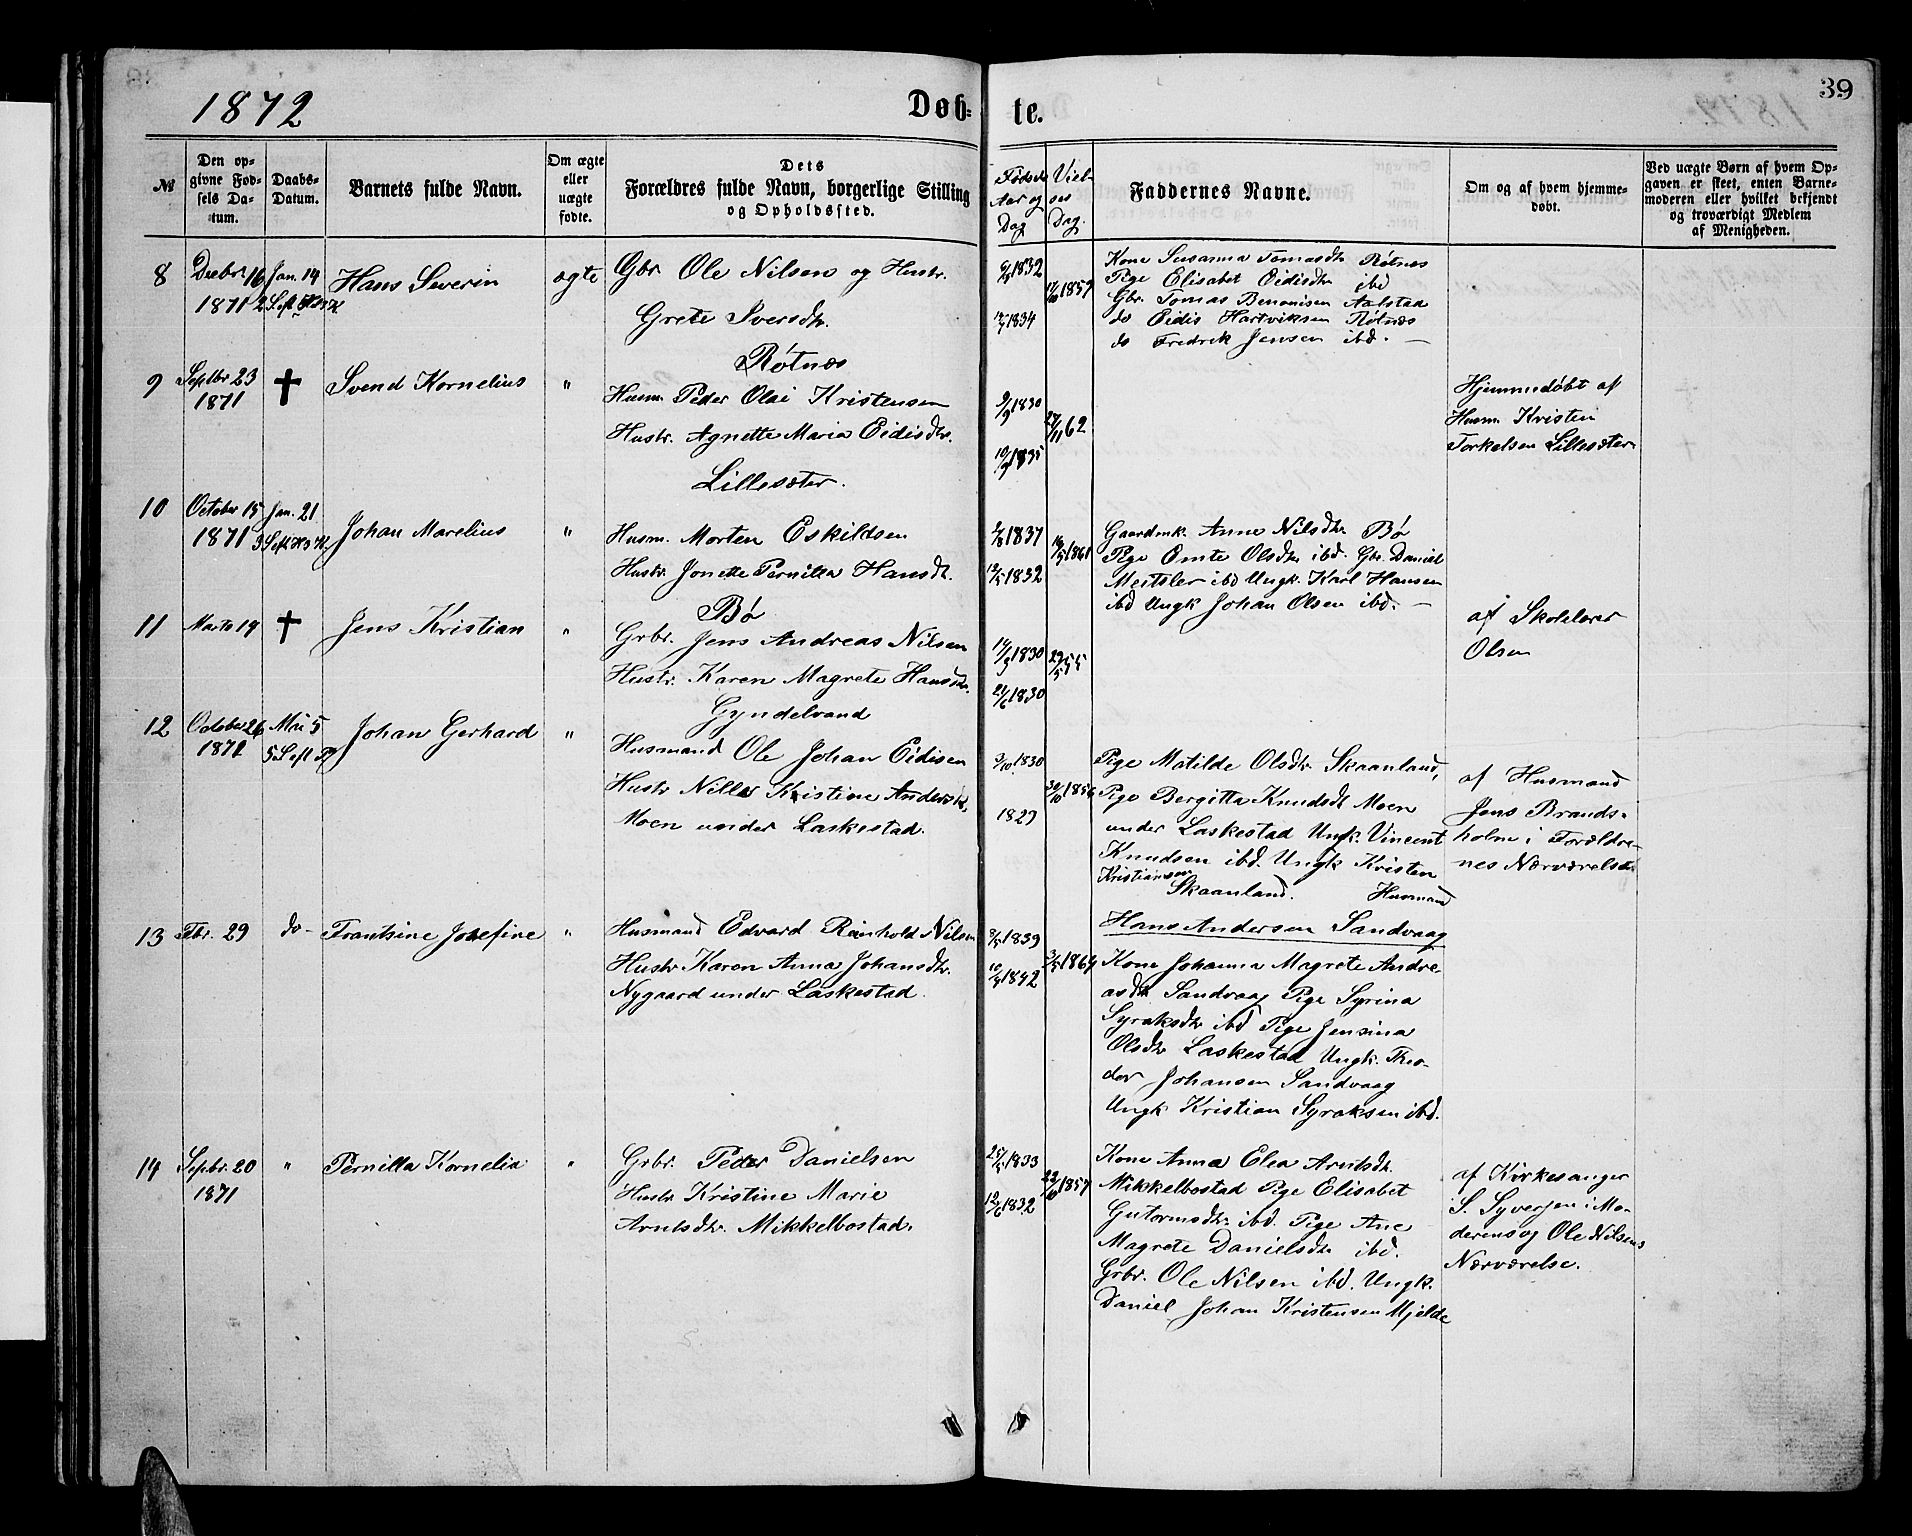 39
1872
Døb-
te.
№
Den op-
givne Fød-
sels Da-
tum.
Daabs-
Datum.
Barnets fulde Navn.
Om ægte
eller
uægte
fødte.
Dets
Forældres fulde Navn, borgerlige Stilling
og Opholdssted.
Føds.
Aar og
Dag
Viel-
ses
Dag.
Faddernes Navne.
Om og af hvem hjemme-
døbt.
Ved uægte Børn af hvem Op-
gaven er skeet, enten Barne-
moderen eller hvilket bekjendt
og troværdigt Medlem
af Menigheden.
8
Decbr. 16
1871
Jan. 14
Hans Severin
ægte
Gbr Ole Nilsen og Hustr.
Grete Iversdtr.
Røtnæs
1832
1834
1859
Kone Susanna Tomasdtr Røtnes
Pige Elisabet Eidisdtr ibd
Gbr. Tomas Benonisen Aalstad
do Eidis Hartviksen Røtnæs
do Fredrik Jensen ibd.
9
Septbr 23
1871
✝
Svend Kornelius
"
Husm. Peder Olai Kristensen
Hustr. Agnette Maria Eidisdtr.
Lillesæter.
9/9 1830
1835
27/11 62
Hjemmedøbt af
Husm. Kristen
Torkelsen Lillesæter.
10
October 15
1871
Jan. 21
Johan Marelius
"
Husm. Morten Eskildsen
Hustr. Jonette Pernilla Hansdtr.
Bø
1837
1832
1861
Gaardmk. Anne Nilsdtr. Bø
Pige Emte Olsdtr ibd. Gbr. Daniel
Meitsler ibd Ungk. Karl Hansen
ibd Ungk Johan Olsen ibd. —
11
Marts 19
✝
Jens Kristian
"
Grbr. Jens Andreas Nilsen
Hustr. Karen Magrete Hansdtr.
Gyndelvand
1830
1830
55
af Skolelærer
Olsen
12
October 26
1872
Mai 5
Johan Gerhard
"
Husmand Ole Johan Eidisen
Hustr Nilla Kristine Andersdtr.
Moen under Laskestad.
1830
1829
Pige Matilde Olsdtr. Skaanland,
Pige Bergitta Knudsdt Moen
under Laskestad Ungk. Vincent
Knudsen ibd. Ungk Kristen
Kristiansen
Skaanland. Husmand
Hans Andersen Sandvaag
af Husmand
Jens Brands-
holm i Forældre-
nes Nærværelse.
13
Fbr. 29
do-
Frantsine Josefine
"
Husmand Edvard Reinhold Nilsen
Hustr Karen Anna Johansdtr.
Nygaard under Laskestad.
1839
1842
1864
Kone Johanna Magrete Andre-
asdtr Sandvaag Pige Syrina
Syraksdtr ibd Pige Jensina
Olsdtr Laskestad Ungk. Theo-
dor Johansen Sandvaag
Ungk Kristian Syraksen ibd.
14
Sepbr. 20
1871
"
Pernilla Kornelia
"
Grbr. Peder Danielsen
Hustr Kristine Marie
Arntsdtr. Mikkelbostad.
1833
1832
1857
Kone Anna Elea Arntsdtr.
Mikkelbostad Pige Elisabet
Gutormsdtr. ibd. Pige Ane
Magrete Danielsdtr ibd.
Grbr. Ole Nilsen ibd. Ungk.
Daniel Johan Kristensen Mjelde
af Kirkesanger
S. Syversen i Mo-
derens og Ole Nilsens
Nærværelse.